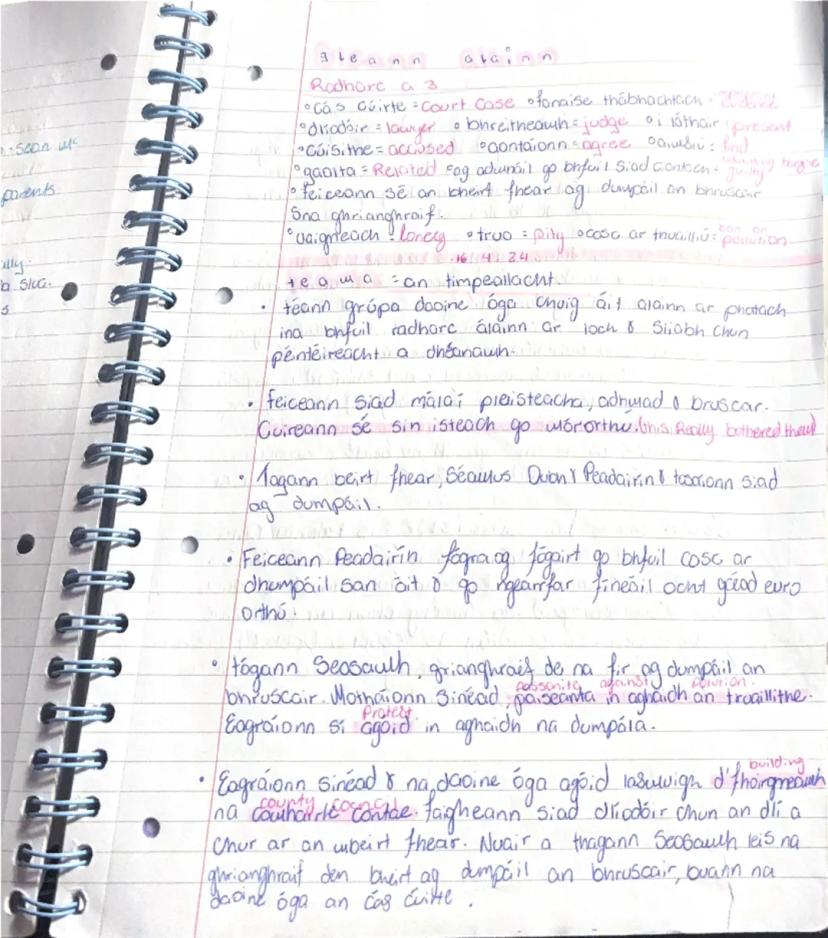 - Sean
parents
Gleann alainn
Radharc a 3
°cás cúirte = court case °fonaise thábhachtach
°dliodóir = lawyer °bhreitheamh = judge °i láthair: present
°cúisithe = accused °aontaíonn = agree find
°gaolta = Related °ag admháil go bhfuil siad ciontach = guilty
°feiceann sé an bheirt fhear ag dumpáil an bhruscair
sna ghrianghraif.
°uaigneach: lonely °trua = pity °cosc ar thruailliú = ban on pollution
16 4 24
teama = an timpeallacht.
• téann grúpa daoine óga chuig áit alainn ar phatach
ina bhfuil radharc álainn ar loch & Sliabh chun
péntéireacht a dhéanamh.
• feiceann siad málaí pleisteacha, adhmad & bruscar.
Cuireann sé sin isteach go mórorthu. (this Really bothered them)
• Tagann beirt fhear, Séamus Dubh & Peadairín & tosaíonn siad
ag dumpáil.
• Feiceann Peadairín fógra ag fógairt go bhfuil cosc ar
dhumpáil san áit & go ngearrfar fíneáil ocht gcéad euro
orthú.
• tógann Seosamh, grianghraif de na fir ag dumpáil an
passionite against polution.
bhruscair. Mothaíonn Sinéad paiseanta in aghaidh an truaillithe.
Protest
Eagraíonn sí agóid in aghaidh na dumpála.
building
• Eagraíonn sinéad & na daoine óga agóid lasmuigh d'fhoirgneamh
county council
na comhairle contae. faigheann siad dliodóir chun an dlí a
chur ar an mbeirt fhear. Nuair a thagann Seosamh leis na
ghrianghraif den bheirt ag dumpáil an bhruscair, buann na
daoine óga an cás cúirte.